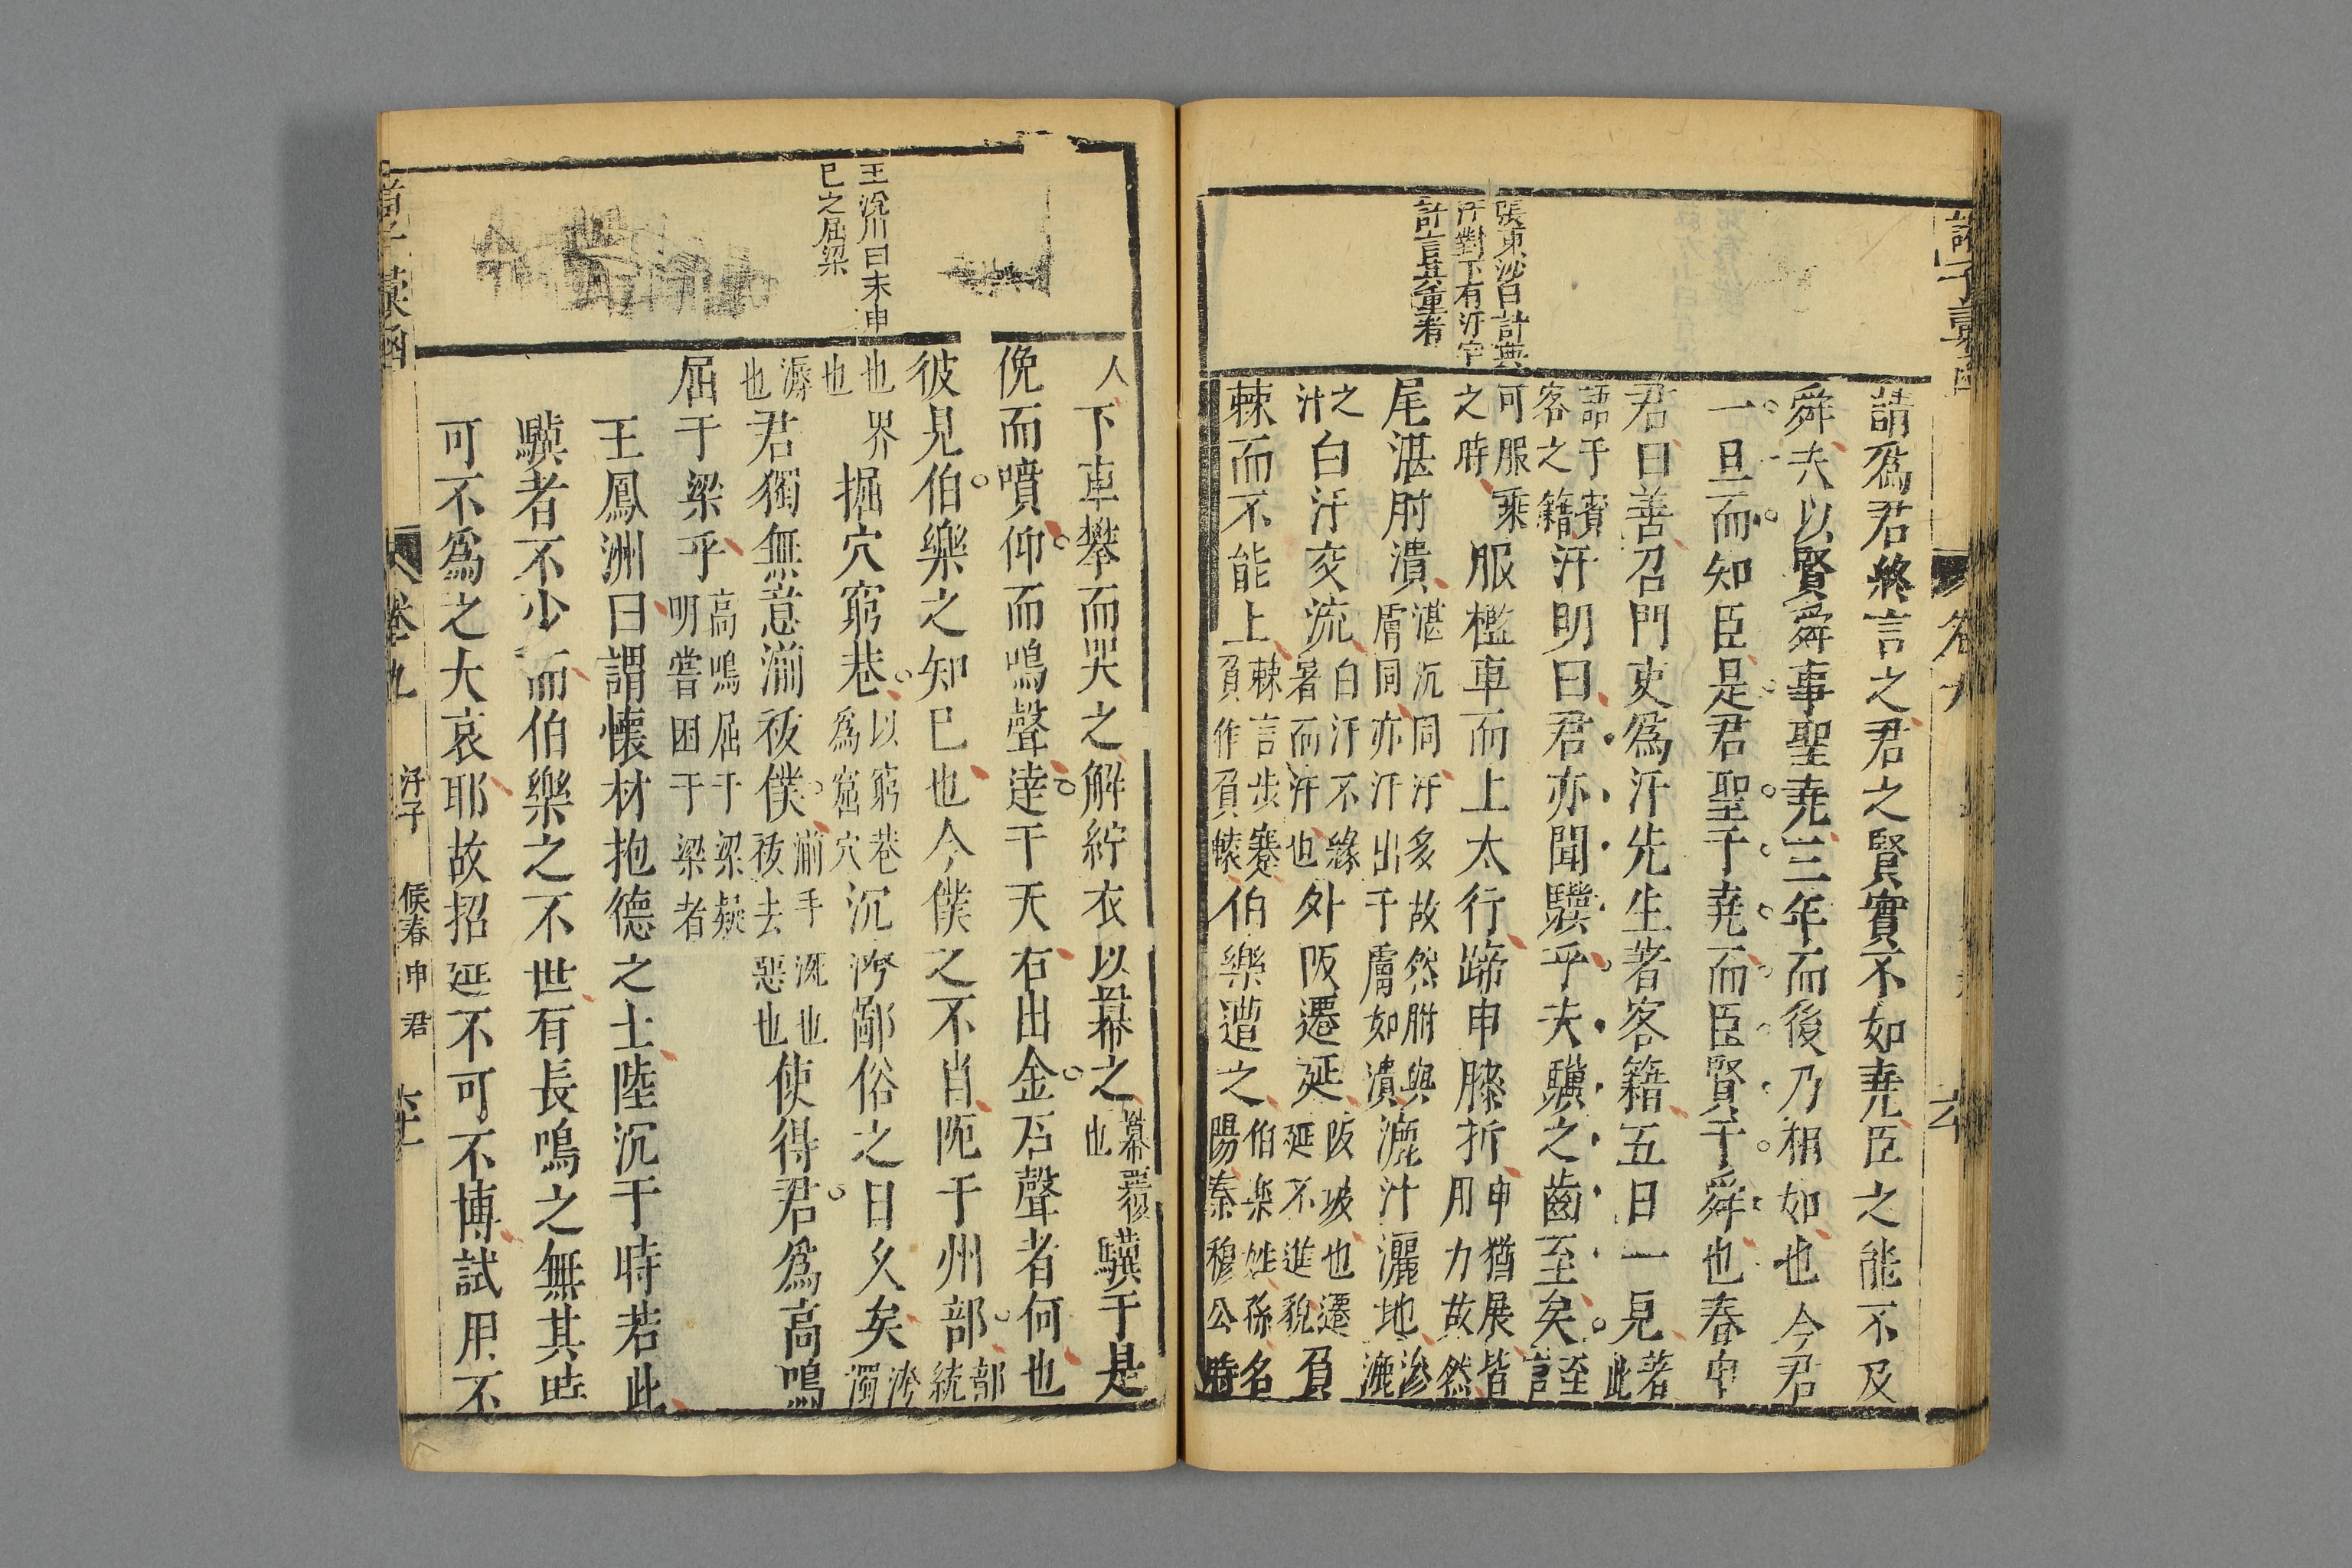 張東沙曰計無
汗對下有汗字
計言其重者
請爲君終言之君之賢實不如堯臣之能不及
舜夫以賢舜事聖堯三年而後乃相知也今君
一旦而知臣是君聖于堯而臣賢于舜也春申
君曰善召門吏爲汗先生著客籍五日一見著此
語于賓客之籍汗明曰君亦聞驥乎夫驥之齒至矣至言
可服乘之時服檻車而上太行蹄申膝折申猶展皆用力故然
尾湛胕潰湛沉同汗多故然胕與膚同亦汗出于膚如潰漉汁灑地滲漉
之汁白汗交流白汗不緣暑而汗也外阪遷延阪坡也遷延不進貌負
棘而不能上棘言步蹇負作負轅伯樂遭之伯樂姓孫名陽秦穆公時
王沉川曰未申
巳之屈梁
人下車攀而哭之解紵衣以冪之冪覆也驥于是
俛而噴仰而鳴聲達于天若出金石聲者何也
彼見伯樂之知巳也今僕之不肖阨于州部部統
也界也掘穴窮巷以窮巷爲窟穴沉洿鄙俗之日久矣洿濁
溽也君獨無意湔祓僕湔手洗也祓去惡也使得君爲高鳴
屈于梁乎高鳴屈于梁疑明嘗困于梁者
王鳳洲曰謂懷材抱德之士陸沉于時若此
驥者不少而伯樂之不世有長鳴之無其時
可不爲之大哀耶故招延不可不博試用不
卷九
汗子
候春申君